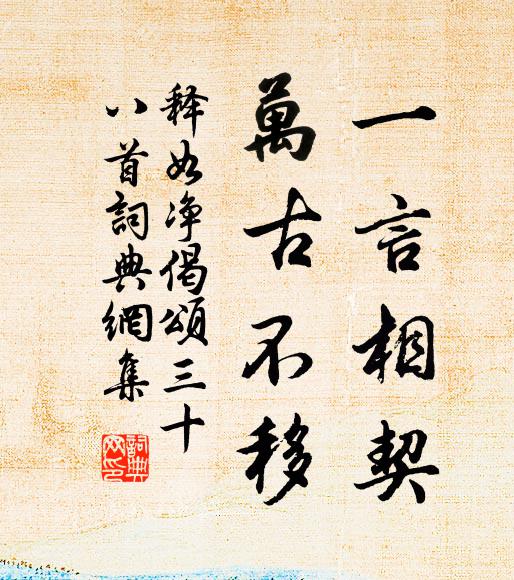 一言相契
萬古不移
释如净偈頌三十
八首詞典網集
詞典
网印